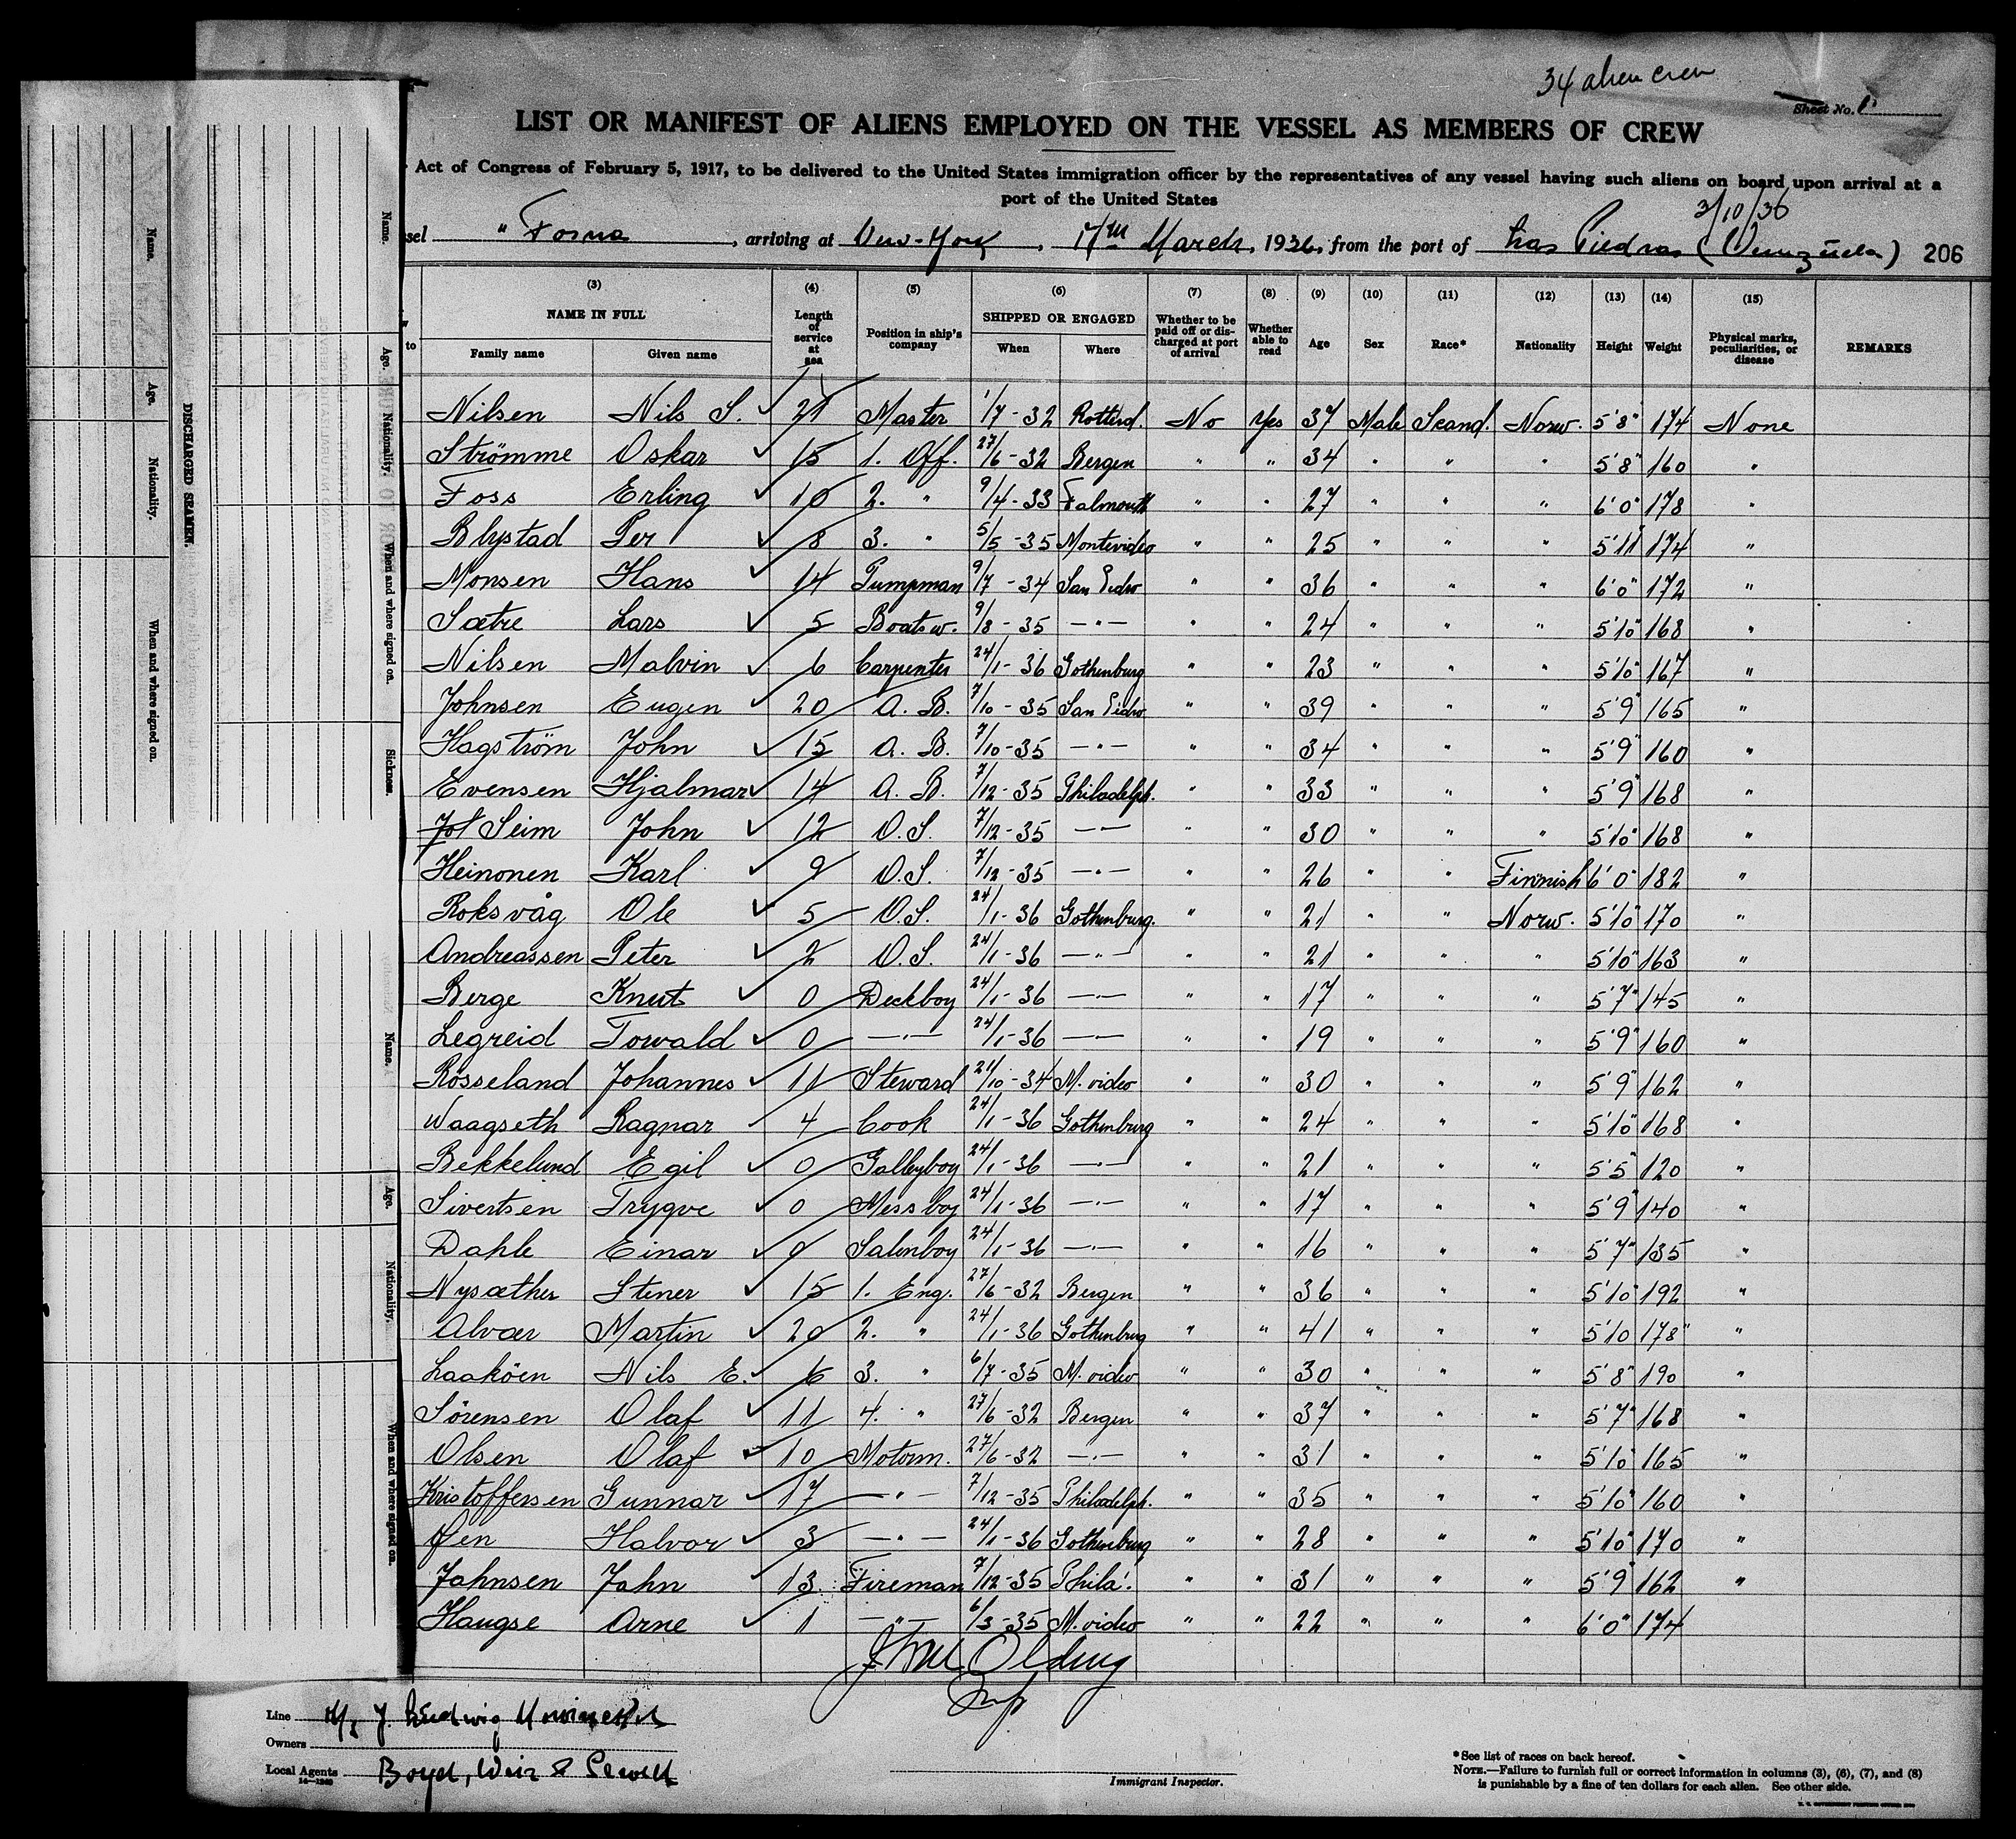 34 alien crew
Sheet No. 1
LIST OR MANIFEST OF ALIENS EMPLOYED ON THE VESSEL AS MEMBERS OF CREW
Act of Congress of February 5, 1917, to be delivered to the United States immigration officer by the representatives of any vessel having such aliens on board upon arrival at a
port of the United States
3/10/36
sel " Fosna , arriving at New-York , 17th March, 1936, from the port of Las Piedras (Venezuela) 206
(3) (4) (5) (6) (7) (8) (9) (10) (11) (12) (13) (14) (15)
NAME IN FULL Length of service at sea Position in ship's company SHIPPED OR ENGAGED Whether to be paid off or discharged at port of arrival Whether able to read Age Sex Race* Nationality Height Weight Physical marks, peculiarities, or disease REMARKS
to Family name Given name When Where
Nilsen Nils S. ✓ 21 Master 1/7-32 Rotterd. No Yes 37 Male Scand. Norw. 5'8" 174 None
Strömme Oskar ✓ 15 1. Off. 27/6-32 Bergen " " 34 " " " 5'8" 160 "
Foss Erling ✓ 10 2. " 9/4-33 Falmouth " " 27 " " " 6'0" 178 "
Blystad Per ✓ 8 3. " 5/5-35 Montevideo " " 25 " " " 5'11" 174 "
Monsen Hans ✓ 14 Pumpman 9/7-34 San Pedro " " 36 " " " 6'0" 172 "
Sætre Lars ✓ 5 Boatsw. 9/8-35 —"— " " 24 " " " 5'10" 168 "
Nilsen Malvin ✓ 6 Carpenter 24/1-36 Gothenburg " " 23 " " " 5'10" 167 "
Johnsen Eugen ✓ 20 A. B. 7/10-35 San Pedro " " 39 " " " 5'9" 165 "
Hagström John ✓ 15 A. B. 7/10-35 —"— " " 34 " " " 5'9" 160 "
Evensen Hjalmar ✓ 14 A. B. 7/12-35 Philadelph. " " 33 " " " 5'9" 168 "
Seim John ✓ 12 O.S. 7/12-35 —"— " " 30 " " " 5'10" 168 "
Heinonen Karl ✓ 9 O.S. 7/12-35 —"— " " 26 " " Finnish 6'0" 182 "
Roksvåg Ole ✓ 5 O.S. 24/1-36 Gothenburg. " " 21 " " Norw. 5'10" 170 "
Andreassen Peter ✓ 2 O.S. 24/1-36 —"— " " 21 " " " 5'10" 163 "
Berge Knut ✓ 0 Deckboy 24/1-36 —"— " " 17 " " " 5'7" 145 "
Legreid Torvald ✓ 0 —"— 24/1-36 —"— " " 19 " " " 5'9" 160 "
Rosseland Johannes ✓ 11 Steward 21/10-34 M. video " " 30 " " " 5'9" 162 "
Waagseth Ragnar ✓ 4 Cook 24/1-36 Gothenburg " " 24 " " " 5'10" 168 "
Bekkelund Egil ✓ 0 Galleyboy 24/1-36 —"— " " 21 " " " 5'5" 120 "
Sivertsen Trygve ✓ 0 Messboy 24/1-36 —"— " " 17 " " " 5'9" 140 "
Dahle Einar ✓ 0 Salonboy 24/1-36 —"— " " 16 " " " 5'7" 135 "
Nysæther Stener ✓ 15 1. Eng. 27/6-32 Bergen " " 36 " " " 5'10" 192 "
Alvær Martin ✓ 20 2. " 24/1-36 Gothenburg " " 41 " " " 5'10 178" "
Laaköen Nils E. ✓ 6 3. " 6/7-35 M. video " " 30 " " " 5'8" 190 "
Sörensen Olaf ✓ 11 4. " 27/6-32 Bergen " " 37 " " " 5'7" 168 "
Olsen Olaf ✓ 10 Motorm. 27/6-32 —"— " " 31 " " " 5'10" 165 "
Kristoffersen Gunnar ✓ 17 —"— 7/12-35 Philadelph. " " 35 " " " 5'10" 160 "
Öen Halvor ✓ 3 —"— 24/1-36 Gothenburg " " 28 " " " 5'10" 170 "
Johnsen John ✓ 13 Fireman 7/12-35 Phila. " " 31 " " " 5'9" 162 "
Haugse Arne ✓ 1 —"— 6/3-35 M. video " " 22 " " " 6'0" 174
Olding
Insp
Line
Owners
Local Agents Boyd, Weir & Sewell
14—1240
Immigrant Inspector.
*See list of races on back hereof.
NOTE.—Failure to furnish full or correct information in columns (3), (6), (7), and (8)
is punishable by a fine of ten dollars for each alien. See other side.
DISCHARGED SEAMEN.
Name.
Age.
Nationality.
When and where signed on.
Name.
Age.
Nationality.
When and where signed on.
Sickness.
Name.
Age.
Nationality.
When and where signed on.